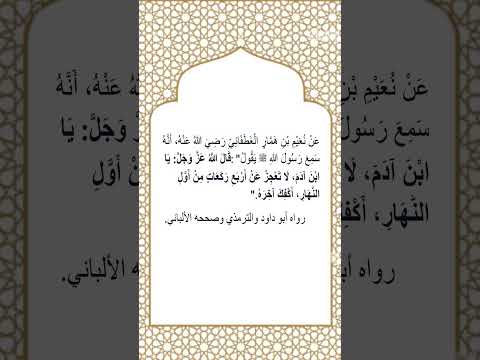 عَنْ نُعَيْمِ بْنِ هَمَّارٍ الْغَطَفَانِيِّ رَضِيَ اللهُ عَنْهُ، أَنَّهُ
سَمِعَ رَسُولَ اللهِ ﷺ يَقُولُ: "قَالَ اللهُ عَزَّ وَجَلَّ: يَا
ابْنَ آدَمَ، لَا تَعْجِزْ عَنْ أَرْبَعِ رَكَعَاتٍ مِنْ أَوَّلِ
النَّهَارِ، أَكْفِكَ آخِرَهُ."
رواه أبو داود والترمذي وصححه الألباني.